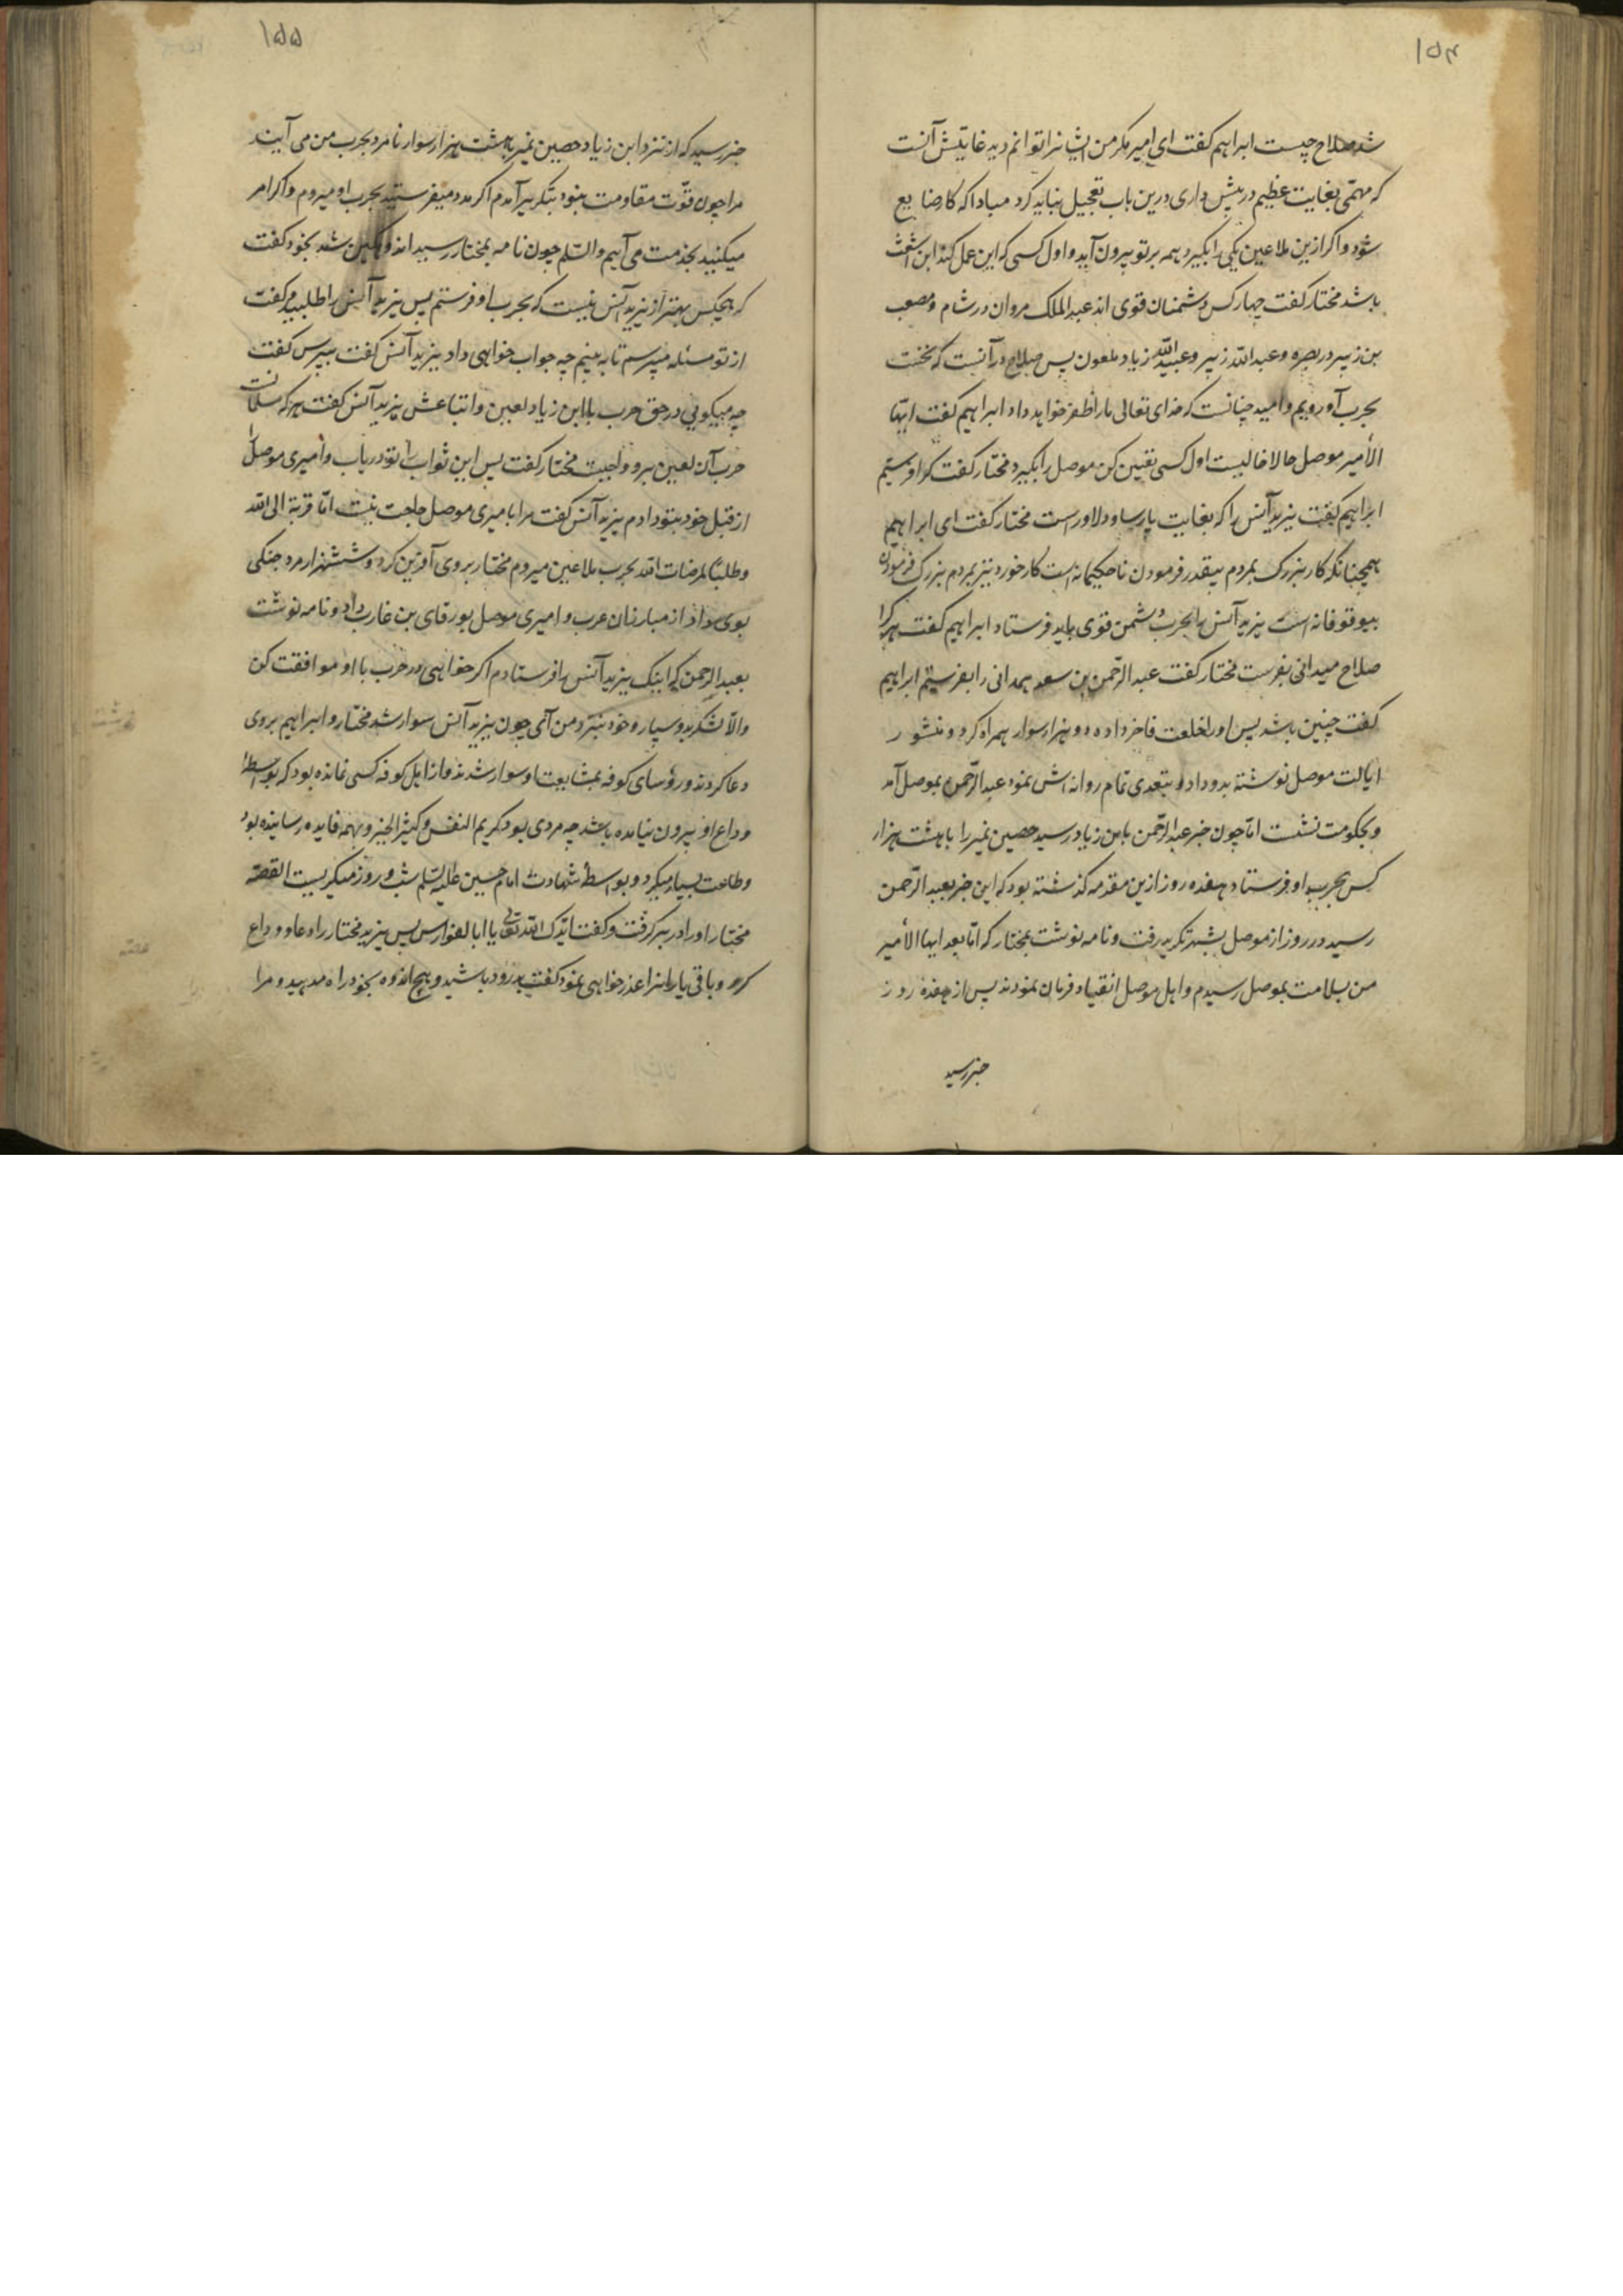 ۱۵۴
شد صلاح چیست ابراهیم کفت ای امیر مکر من ایشانرا توانم دید غایتش آنست
که مهمّی بغایت عظیم در پیش داری درین باب تعجیل نباید کرد مبادا که کار ضایع
شود و اکر ازین ملاعین یکی را بکیرد همه بر تو بیرون آید و اول کسی که این عمل کند ابن اشعث
باشد مختار کفت چهار کس دشمنان قوی اند عبد الملک مروان در شام و مصعب
بن زبیر در بصره و عبد اللّه زبیر و عبید اللّه زیاد ملعون پس صلاح در آنست که نخست
بحرب او رویم و امید چنانست که خدای تعالی ما را ظفر خواهد داد ابراهیم کفت ایّها
الأمیر موصل حالا خالیست اول کسی تعین کن موصل را بکیرد مختار کفت کرا فرستیم
ابراهیم کفت یزید آنس را که بغایت پارسا و دلاور است مختار کفت ای ابراهیم
همچنانکه کار بزرک بمردم بیقدر فرمودن ناحکیمانه است کار خورد نیز بمردم بزرک فرمودن
بیوقوفانه است یزید آنس را بحرب دشمن قوی باید فرستاد ابراهیم کفت هر کرا
صلاح میدانی بفرست مختار کفت عبد الرّحمن بن سعد همدانی را بفرستیم ابراهیم
کفت چنین باشد پس او را خلعت فاخر داده دو هزار سوار همراه کرد و منشور
ایالت موصل نوشته بدو داد و بتعدی تمام روانه اش نمود عبد الرّحمن بموصل آمد
و بحکومت نشست امّا چون خبر عبد الرّحمن بابن زیاد رسید حصین نمیر را با هشت هزار
کس بحرب او فرستاد هفده روز ازین مقدمه کذشته بود که این خبر بعبد الرّحمن
رسید در روز از موصل بشهر تکریر رفت و نامه نوشت بمختار که امّا بعد ایها الأمیر
من بسلامت بموصل رسیدم و اهل موصل انقیاد فرمان نمودند پس از هفده روز
خبر رسید
۱۵۵
خبر رسید که از نزد ابن زیاد حصین نمیر با هشت هزار سوار نامرد بحرب من می آیند
مرا چون قوّت مقاومت نبود بتکریر آمدم اکر مدد میفرستید بحرب او میروم و اکر امر
میکنید بخدمت می آیم والسّلم چون نامه بمختار رسید اندوهکین شد بخود کفت
که هیچکس بهتر از یزید آنس نیست که بحرب او فرستم پس یزید آنس را طلبید و کفت
از تو مسئله میپرسم تا به بینم چه جواب خواهی داد یزید آنس کفت بپرس کفت
چه میکویی در حق حرب با ابن زیاد لعین و اتباعش یزید آنس کفت هر که مسلمانست
حرب آن لعین برو واجبست مختار کفت پس این ثواب را تو دریاب و امیری موصل را
از قبل خود بتو دادم یزید آنس کفت مرا با میری موصل حاجت نیست امّا قربة الی اللّه
و طلبًا لمرضات اللّه بحرب ملاعین میروم مختار بروی آفرین کرد و ششهزار مرد جنکی
بوی داد از مبارزان عرب و امیری موصل بورقای بن غارب داد و نامه نوشت
بعبد الرحمن که اینک یزید آنس را فرستادم اکر خواهی در حرب با او موافقت کن
والّا لشکر بدو سپار و خود بنزد من آئی چون یزید آنس سوار شد مختار و ابراهیم بروی
دعا کردند و رؤسای کوفه بمشایعت او سوار شدند و از اهل کوفه کسی نمانده بود که بواسطهٔ
وداع او بیرون نیامده باشد چه مردی بود کریم النفس و کثیر الخیر و بهمه فایده رسانیده بود
و طاعت بسیار میکرد و بواسطهٔ شهادت امام حسین علیه السّلم شب و روز میکریست القصّه
مختار او را در بر کرفت و کفت ایّدک اللّه تعالی یا ابا لفوارس پس یزید مختار را دعا و وداع
کرد و باقی یارانرا عذر خواهی نمود کفت بدرود باشید و هیچ اندوه بخود راه مدهید و مرا